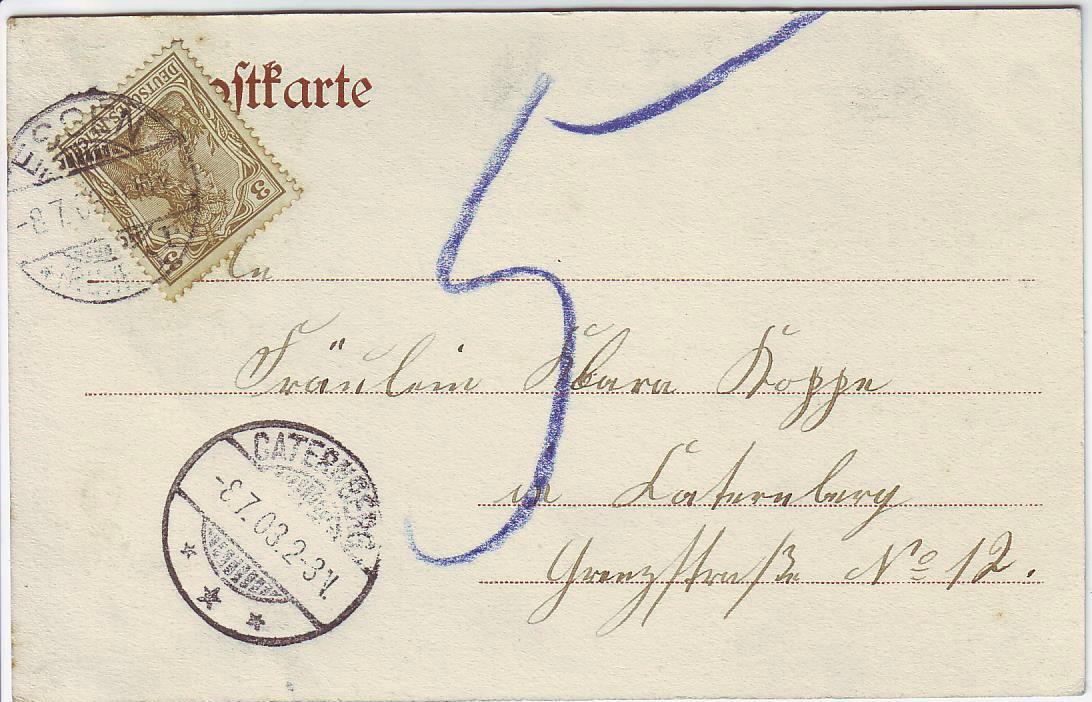 ostkarte
DEUTSCHES REICH
3
3
-8.7.03
5
An
Fräulein Klara Koppe
in Caternberg
Grenzstraße No 12.
CATERNBERG
-8.7.03.2-3V.